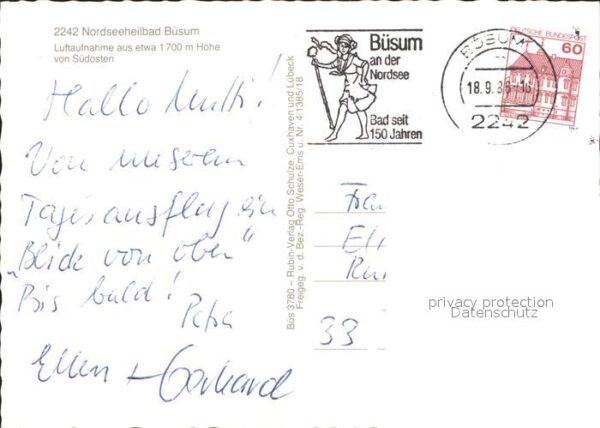 2242 Nordseeheilbad Büsum
Luftaufnahme aus etwa 1700 m Höhe
von Südosten
Hallo Mutti!
Von unserem
Tagesausflug ein
„Blick von oben“
Bis bald!
Petra
Ellen + Gerhard
Büs 3780 – Rubin-Verlag Otto Schulze, Cuxhaven und Lübeck
Freigeg. v. d. Bez.-Reg. Weser-Ems u. Nr. 4/1385/18
Büsum
an der
Nordsee
Bad seit
150 Jahren
BÜSUM
18.9.8
2242
DEUTSCHE BUNDESPOST
60
Frau
33
privacy protection
Datenschutz